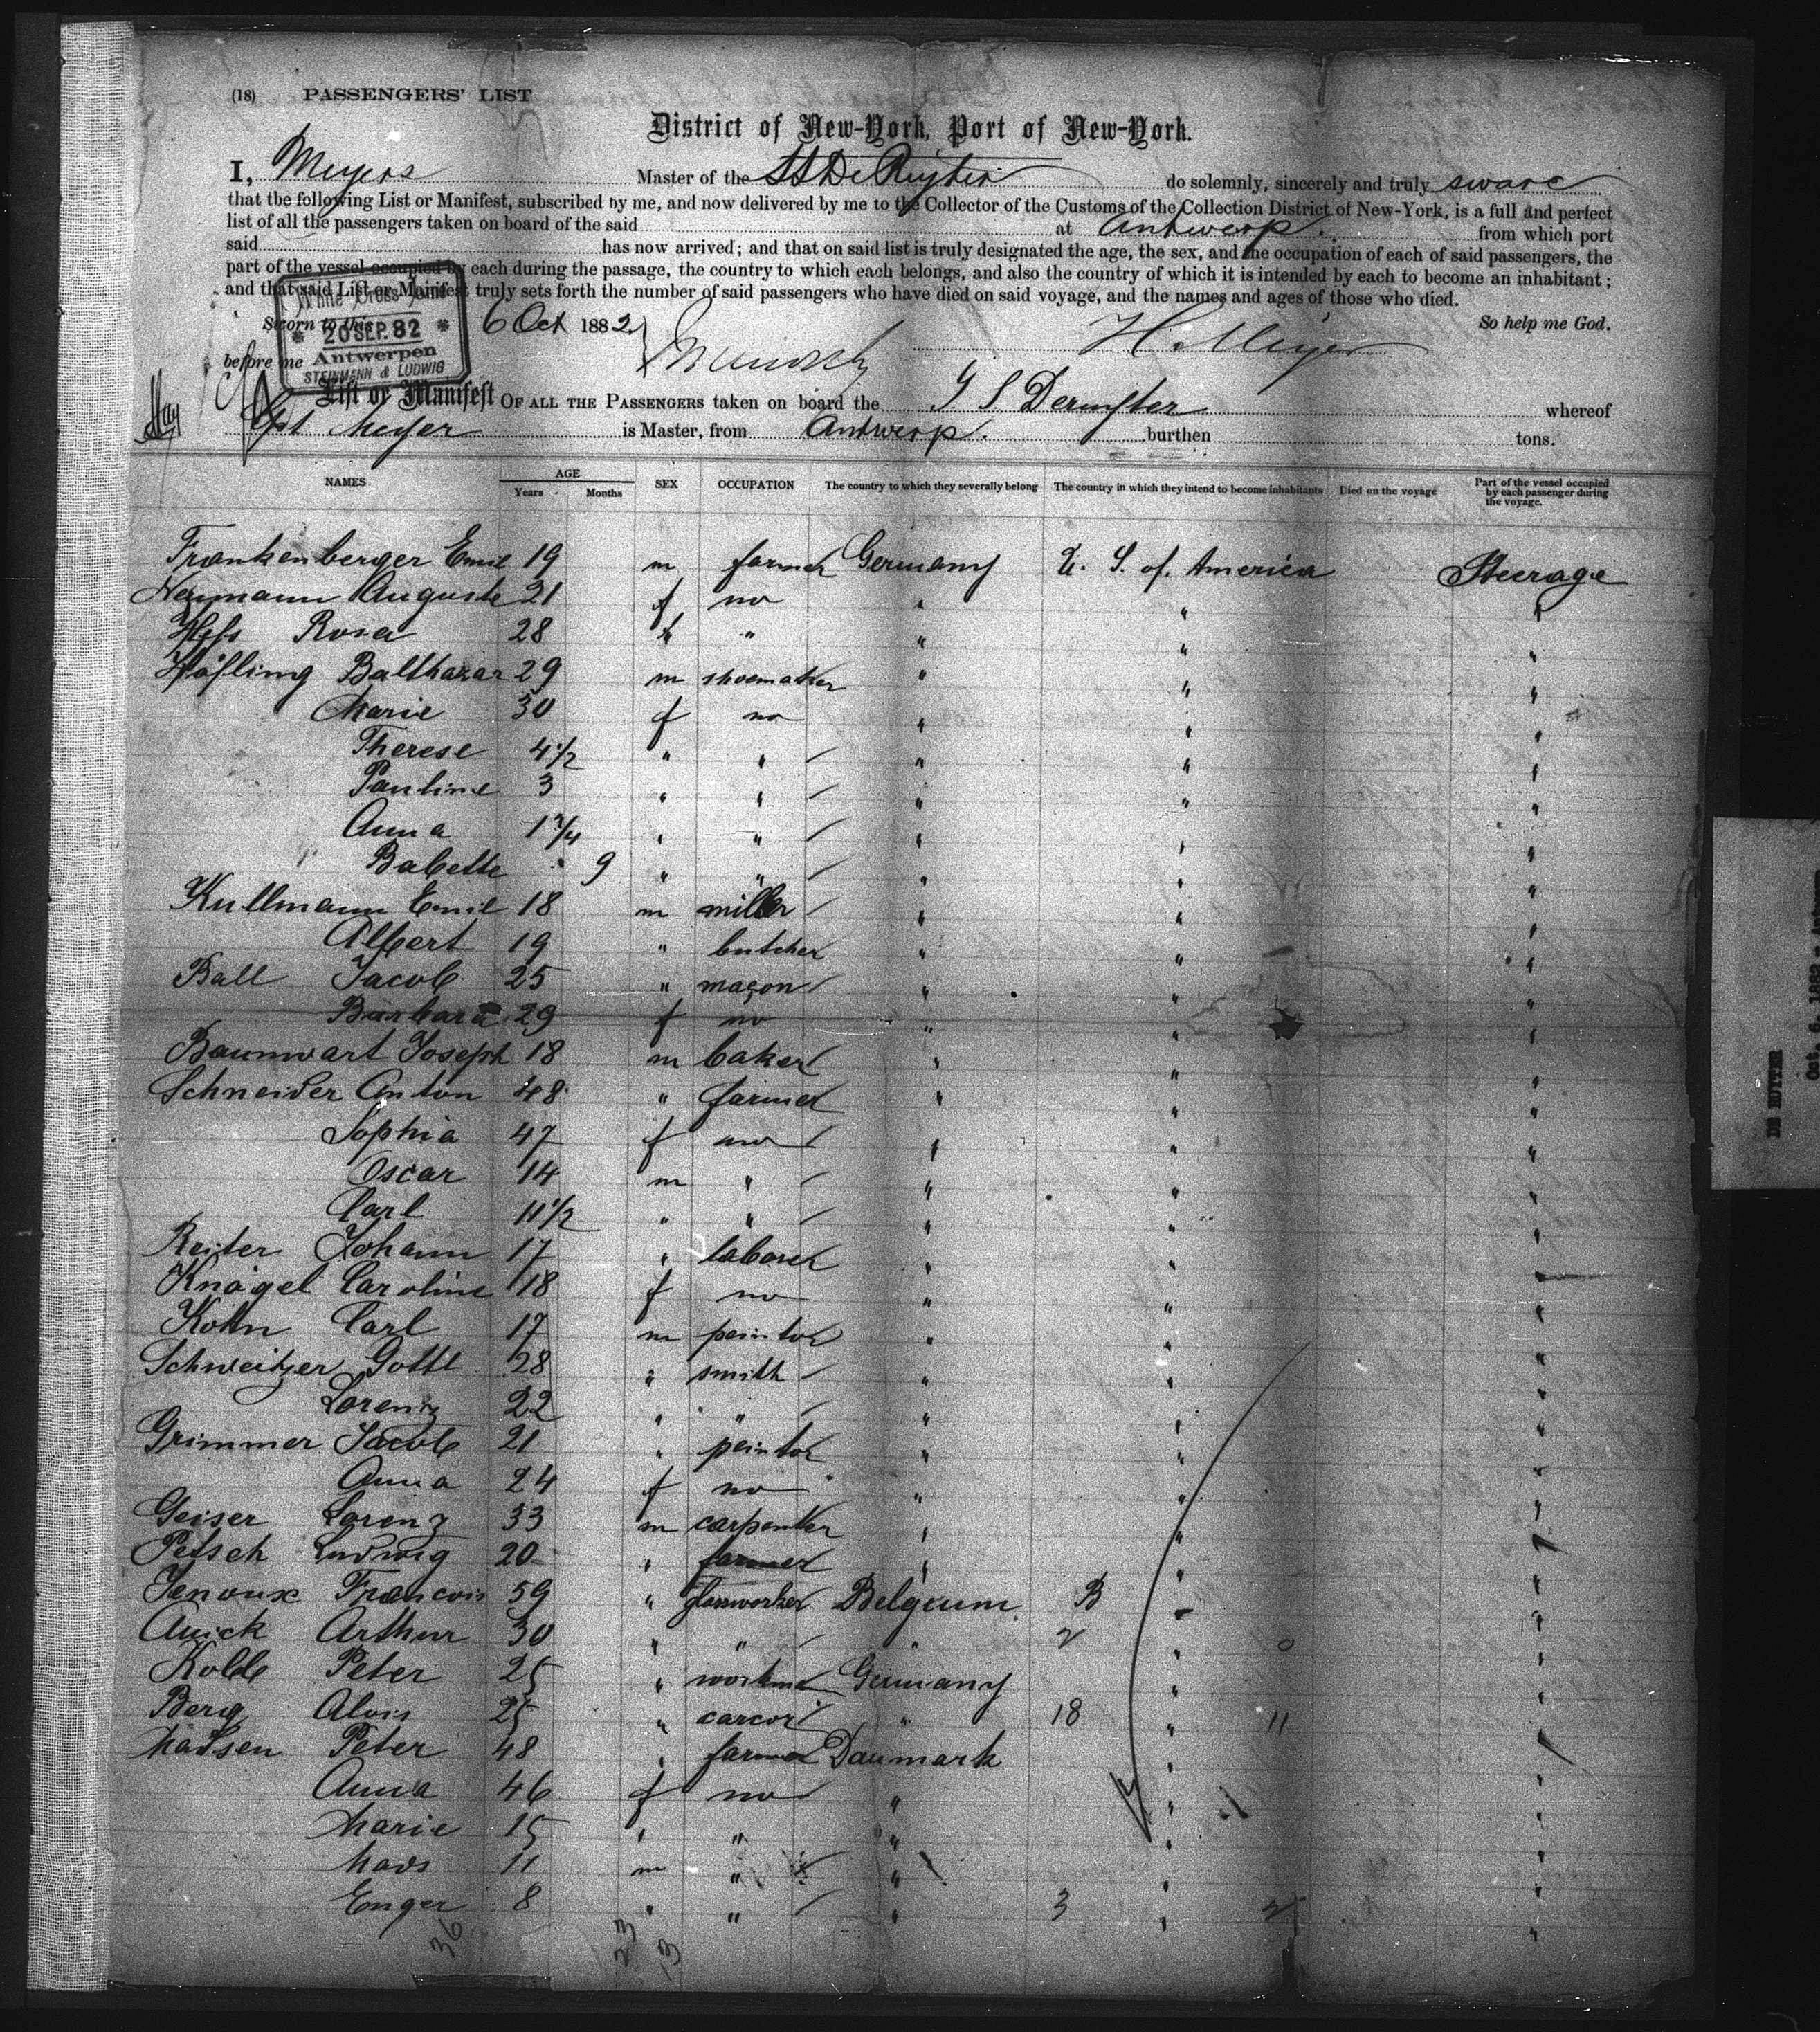 (18) PASSENGERS' LIST
District of New-York, Port of New-York.
I, Meyers Master of the SS De Ruyter do solemnly, sincerely and truly sware
that the following List or Manifest, subscribed by me, and now delivered by me to the Collector of the Customs of the Collection District of New-York, is a full and perfect
list of all the passengers taken on board of the said at Antwerp. from which port
said has now arrived; and that on said list is truly designated the age, the sex, and the occupation of each of said passengers, the
part of the vessel occupied by each during the passage, the country to which each belongs, and also the country of which it is intended by each to become an inhabitant;
and that said List or Manifest truly sets forth the number of said passengers who have died on said voyage, and the names and ages of those who died.
White Cross Line
* 20 SEP. 82 *
Antwerpen
STEINMANN & LUDWIG
Sworn to this 6 Oct 1882 H. Meyer So help me God.
before me
List or Manifest OF ALL THE PASSENGERS taken on board the S S Deruyter whereof
Cpt Meyer is Master, from Antwerp. burthen tons.
NAMES AGE Years Months SEX OCCUPATION The country to which they severally belong The country in which they intend to become inhabitants Died on the voyage Part of the vessel occupied by each passenger during the voyage.
Frankenberger Emil 19 m farmer Germany U. S. of America Steerage
Neumann Auguste 21 f no " " "
Hess Rosa 28 " " " " "
Höfling Balthasar 29 m shoemaker " " "
Marie 30 f no " " "
Therese 4 1/2 " " " " "
Pauline 3 " " " " "
Anna 1 3/4 " " " " "
Babette 9 " " " " "
Kullmann Emil 18 m miller " " "
Albert 19 " butcher " " "
Ball Jacob 25 " maçon " " "
Barbara 29 f no " " "
Baumwart Joseph 18 m baker " " "
Schneider Anton 48 " farmer " " "
Sophia 47 f no " " "
Oscar 14 m " " " "
Carl 11 1/2 " " " " "
Reiter Johann 17 " laborer " " "
Knägel Caroline 18 f no " " "
Kohn Carl 17 m peintor " " "
Schweitzer Gottl 28 " smith " " "
Lorenz 22 " " " " "
Grimmer Jacob 21 " peintor " " "
Anna 24 f no " " "
Geiser Lorenz 33 m carpenter " " "
Petsch Ludwig 20 " farmer " " "
Jenoux Francois 59 " glassworker Belgium B " "
Quick Arthur 30 " " " 2 " 0 "
Kolb Peter 25 " workman Germany " "
Berg Alois 25 " " 18 " 11 "
Madsen Peter 48 " farmer Danmark " "
Anna 46 f no " " "
Marie 15 " " " " "
Mads 11 m " " " "
Enger 8 " " " 3 " 2 "
36 23 13
DE RUYTER